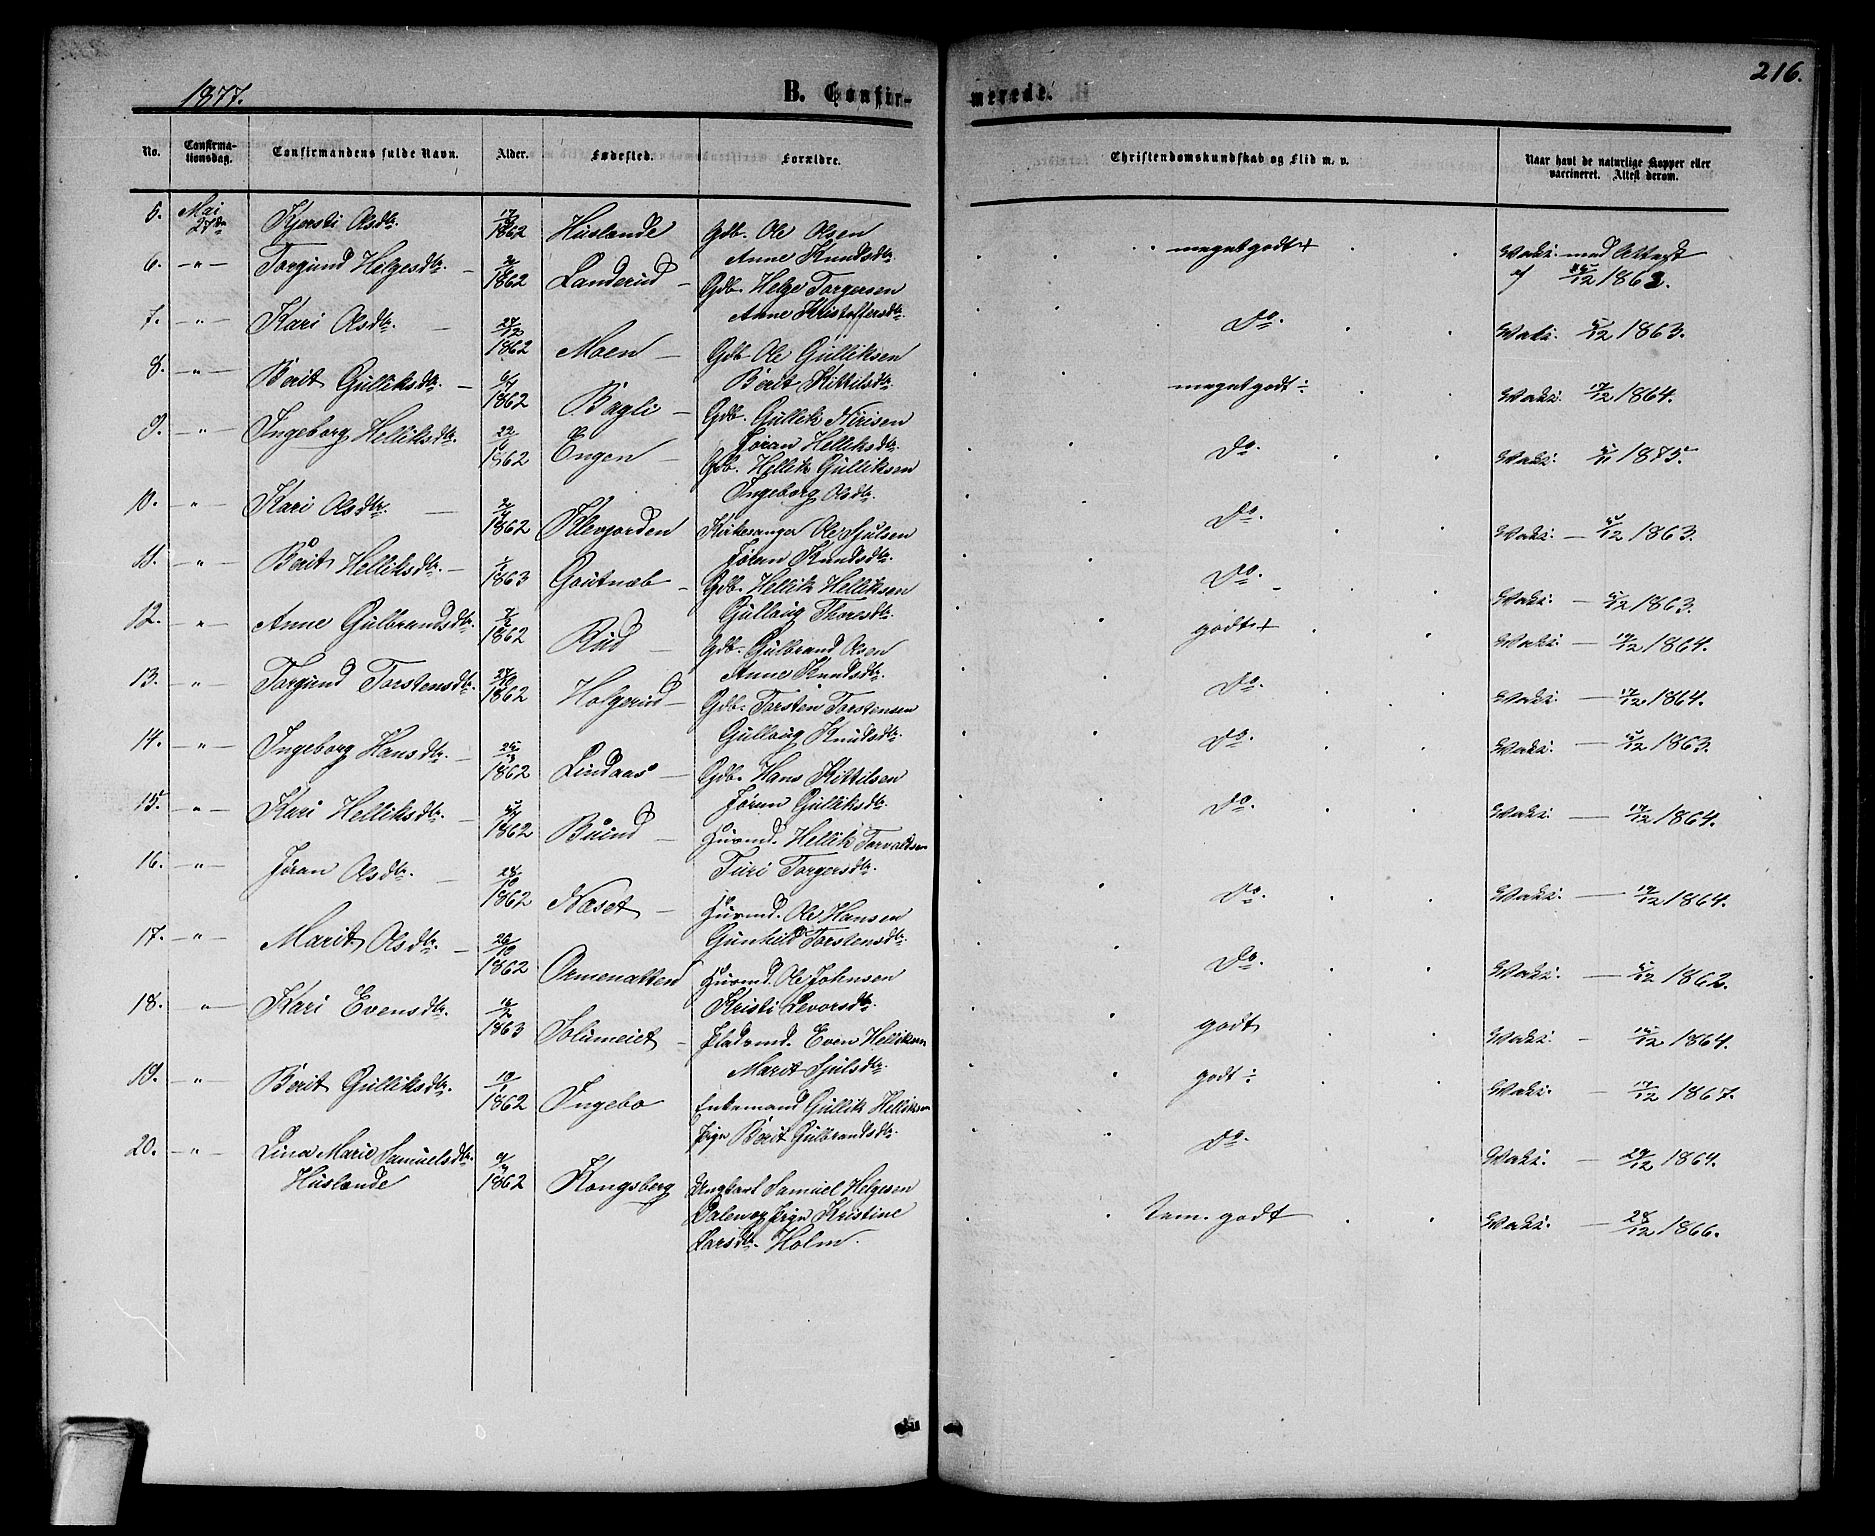 1877.
B. Confirmerede.
216.
No.
Confirmationsdag.
Confirmandens fulde Navn.
Alder.
Fødested.
Forældre.
Christendomskundskab og Flid m. v.
Naar havt de naturlige Kopper eller vaccineret. Attest derom.
5. Mai 27de Kjersti Olsdtr. 1862 Huslende Gdb. Ole Olsen
Anne Knudsdtr.
meget godt + Vaks: med Attest af 12 1862.
6. — " — Torgund Helgesdtr. 1862 Landerud Gdb. Helge Torgersen
Anne Kristoffersdtr.
Do. Vaks: 12 1863.
7. — " — Kari Olsdtr. 27/12 1862 Moen Gdb. Ole Gulliksen
Berit Kittilsdtr.
meget godt ÷ Vaks: 17/12 1864.
8. — " — Berit Gulliksdtr. 1862 Bagli Gdb. Gullik Nirisen
Jøran Helliksdtr.
Do. Vaks: 1875.
9. — " — Ingeborg Helliksdtr. 22 1862 Engen Gdb. Hellik Gulliksen
Ingeborg Olsdtr.
Do. Vaks: — 12 1863.
10. — " — Kari Olsdtr. 1862 Klevjorden Kirkesanger Ole Sjulsen
Jøran Knudsdtr.
Do. Vaks: — 12 1863.
11. — " — Berit Helliksdtr. 1863 Goutnæb Gdb. Hellik Helliksen
Gullaug Thorsdtr.
godt + Vaks: — 17/12 1864.
12. — " — Anne Gulbrandsdtr. 1862 Rud Gdb. Gulbrand Olsen
Anne Knudsdtr.
Do. Vaks: — 17/12 1864.
13. — " — Torgund Torstensdtr. 27/10 1862 Holgerud Gdb. Torsten Torstensen
Gullaug Knudsdtr.
Do. Vaks: — 12 1863.
14. — " — Ingeborg Hansdtr. 1862 Lindaas Gdb. Hans Kittilsen
Jøran Gulliksdtr.
Do. Vaks: — 17/12 1864.
15. — " — Kari Helliksdtr. 1862 Buind Husmd. Hellik Torvaldsen
Turi Torgersdtr.
Do. Vaks: — 17/12 1864.
16. — " — Jøran Olsdtr. 28/10 1862 Næset Husmd. Ole Hansen
Gunhild Torstensdtr.
Do. Vaks: — 12 1862.
17. — " — Marit Olsdtr. 26/10 1862 Ormenatten Husmd. Ole Johnsen
Kristi Levorsdtr.
godt Vaks: — 12 1864.
18. — " — Kari Evensdtr. 1863 Solumeiet Pladsmd. Even Helliksen
Marit Sjulsdtr.
godt ÷ Vaks: — 17/12 1867.
19. — " — Berit Gulliksdtr. 1862 Ingebo Enkemand Gullik Helliksen
Pige Berit Gulbrandsdtr.
Do. Vaks: — 29/12 1864.
20. — " — Lina Marie Samuelsdtr.
Huslende
1862 Kongsberg Ungkarl Samuel Helgesen
Dalen og Pige Kristine
Larsdtr. Holm.
Tem. godt Vaks: — 28/12 1866.